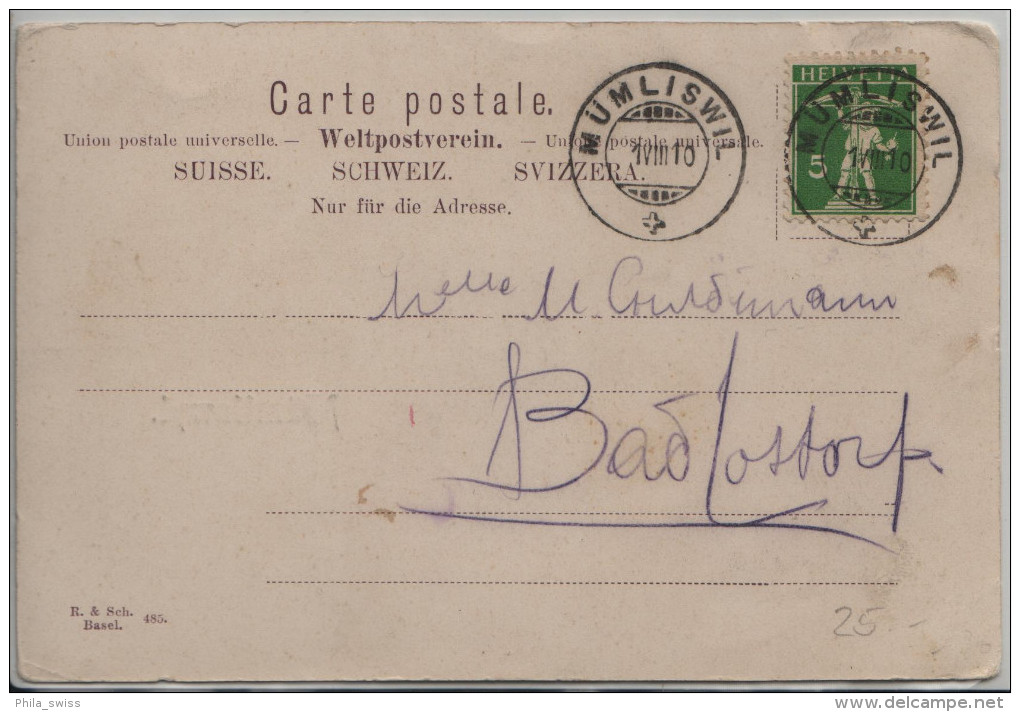 Carte postale.
Union postale universelle. — Weltpostverein. — Union postale universale.
SUISSE. SCHWEIZ. SVIZZERA.
Nur für die Adresse.
MÜMLISWIL
1 VIII 10
HELVETIA
5
MÜMLISWIL
1 VIII 10
Melle M
Bad Lostorf.
R. & Sch.
Basel. 485.
25.-
Phila_swiss
delcampe.net